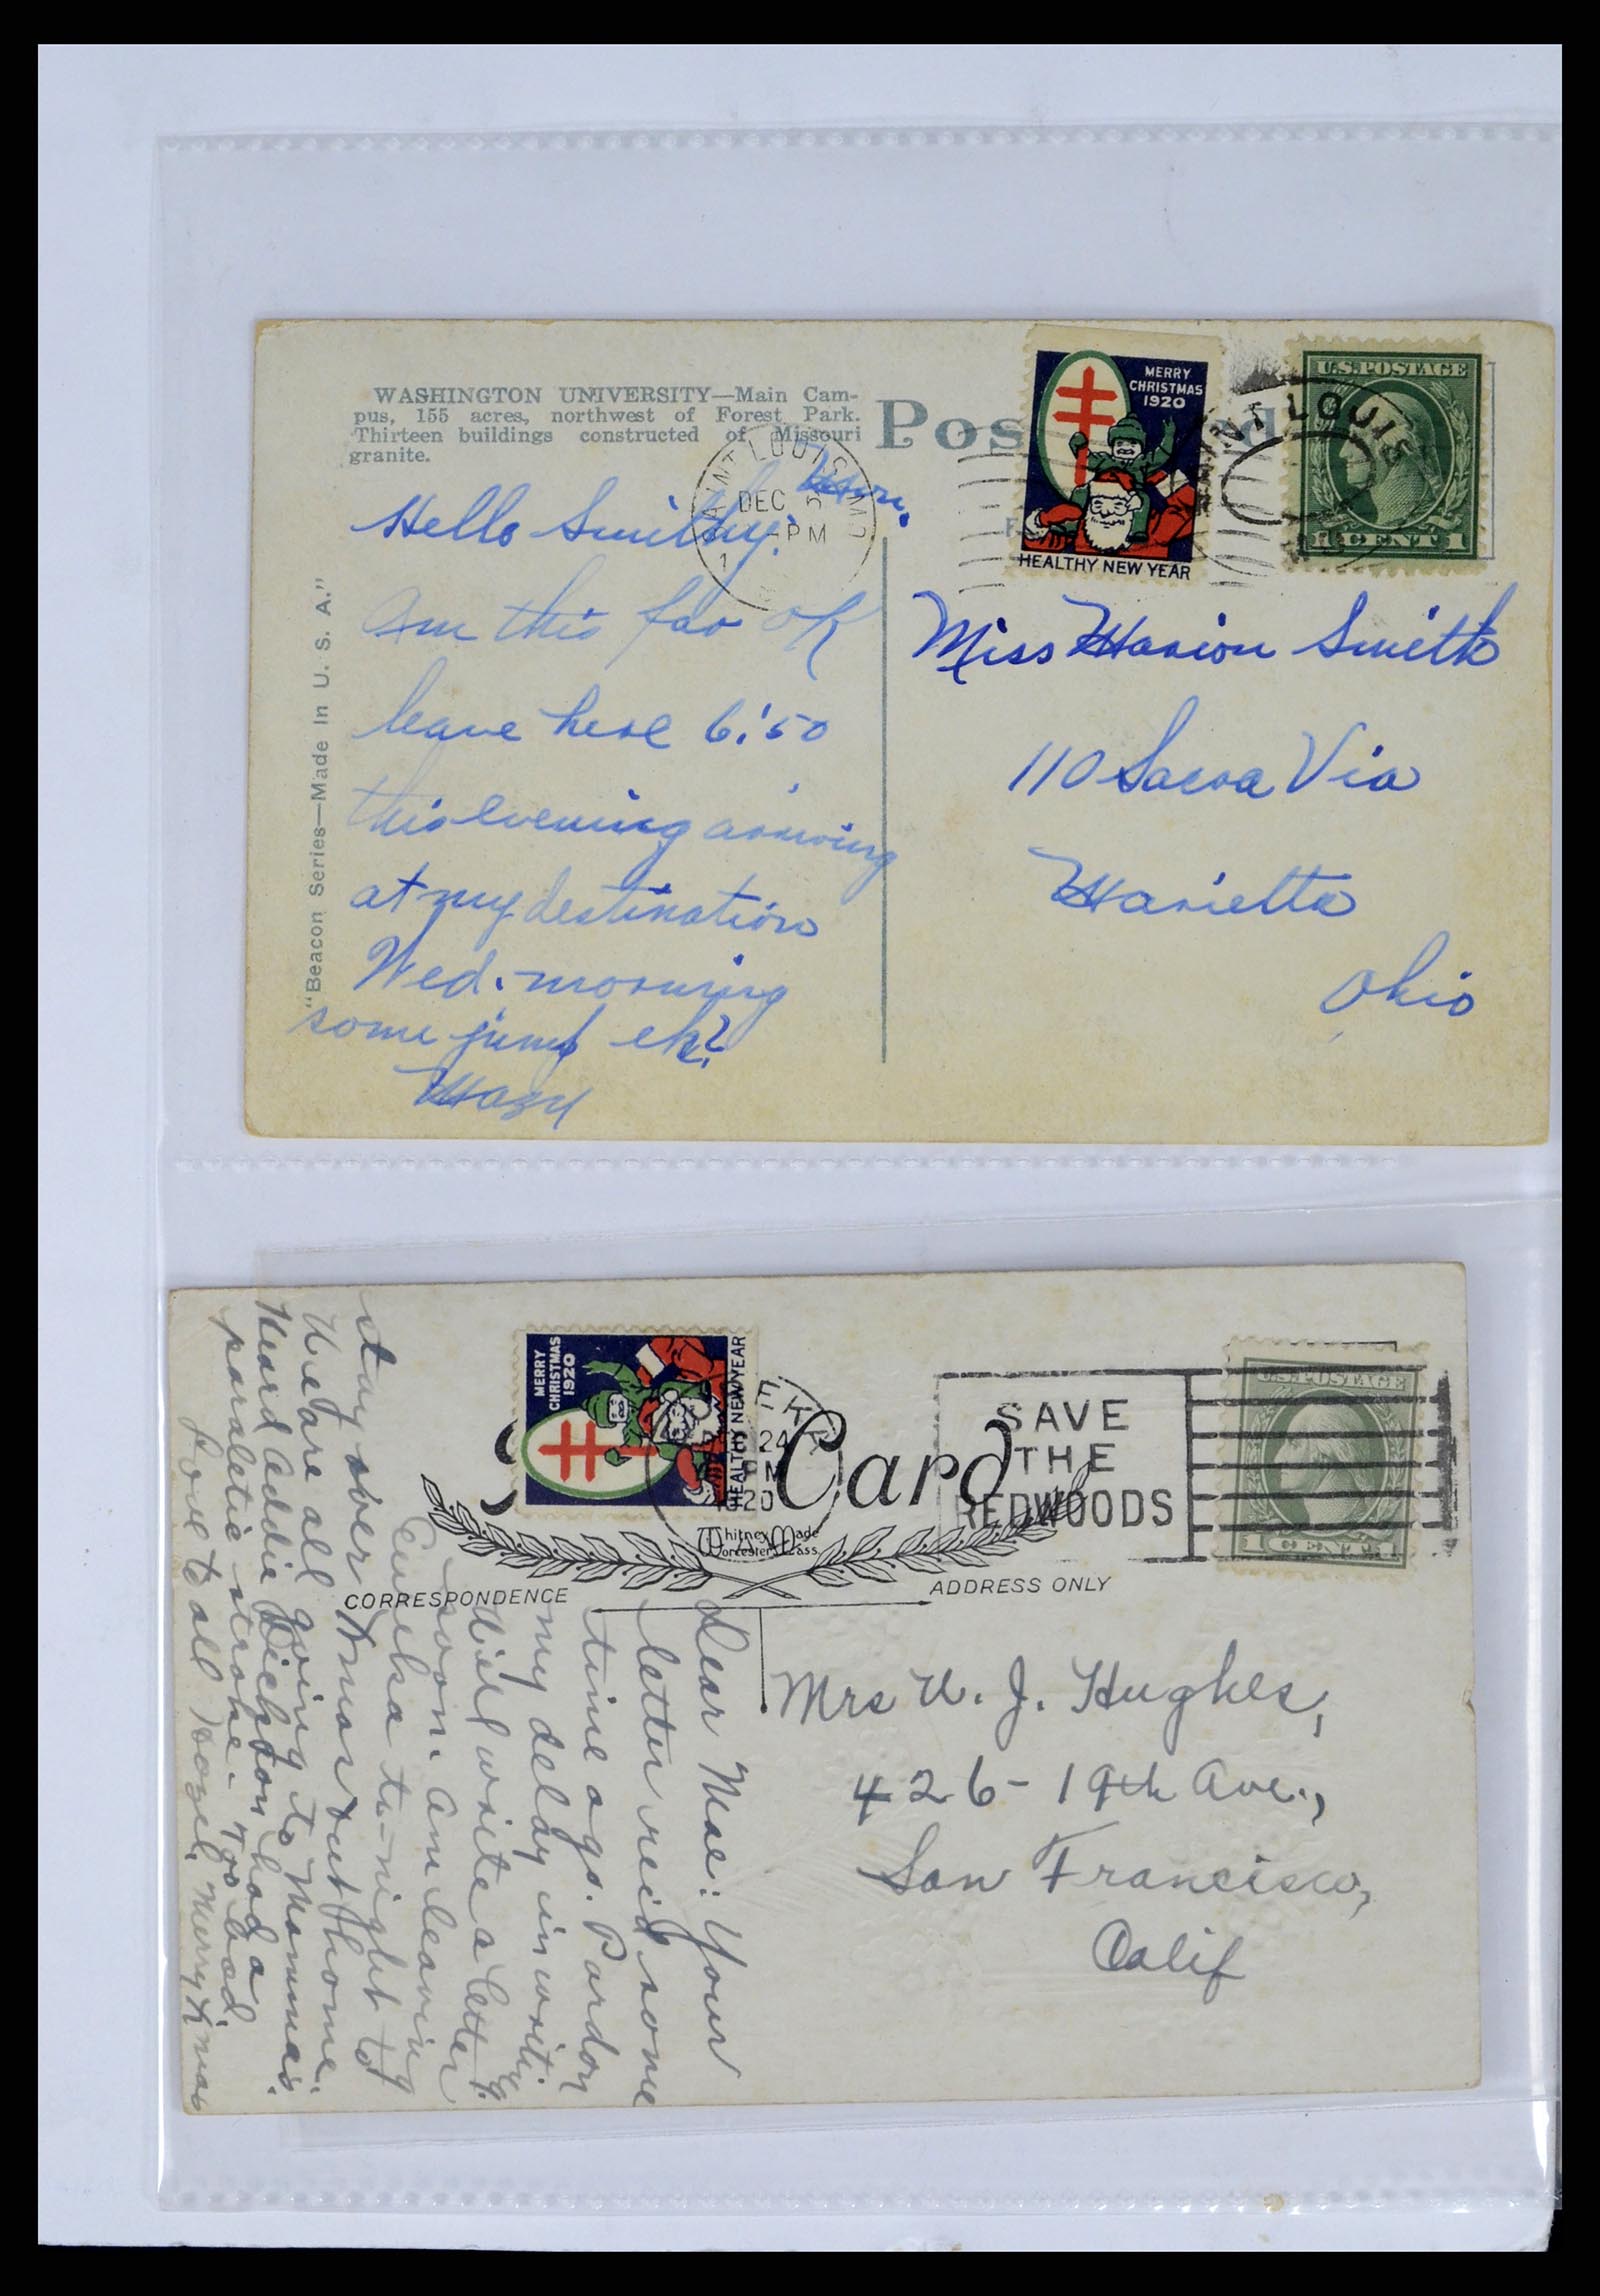 WASHINGTON UNIVERSITY—Main Cam-
pus, 155 acres, northwest of Forest Park.
Thirteen buildings constructed of Missouri
granite.
"Beacon Series—Made In U. S. A."
Pos d
MERRY
CHRISTMAS
1920
HEALTHY NEW YEAR
U.S.POSTAGE
1 CENT 1
SAINT LOUIS
SAINT LOUIS, MO
DEC 5
PM
1
Mon.
Hello Smithy:
Am this far OK
leave here 6:50
this evening arriving
at my destination
Wed. morning
some jump eh?
Mary
Miss Marion Smith
110 Sacra Via
Marietta
Ohio
MERRY
CHRISTMAS
1920
HEALTHY NEW YEAR
EK
24
PM
1920
Card
SAVE
THE
REDWOODS
U.S.POSTAGE
1 CENT 1
Whitney Made
Worcester, Mass.
CORRESPONDENCE
ADDRESS ONLY
Dear Mae: Your
letter rec'd some
time ago. Pardon
my delay in writing.
Will write a letter
soon. Am leaving
Eureka to-night to
stay over Xmas at home.
We are all going to Mamma's.
Heard Addie Dickson had a
paraletic stroke. Too bad.
Love to all Hazel. Merry Xmas
Mrs W. J. Hughes,
426-19th Ave.,
San Francisco,
Calif